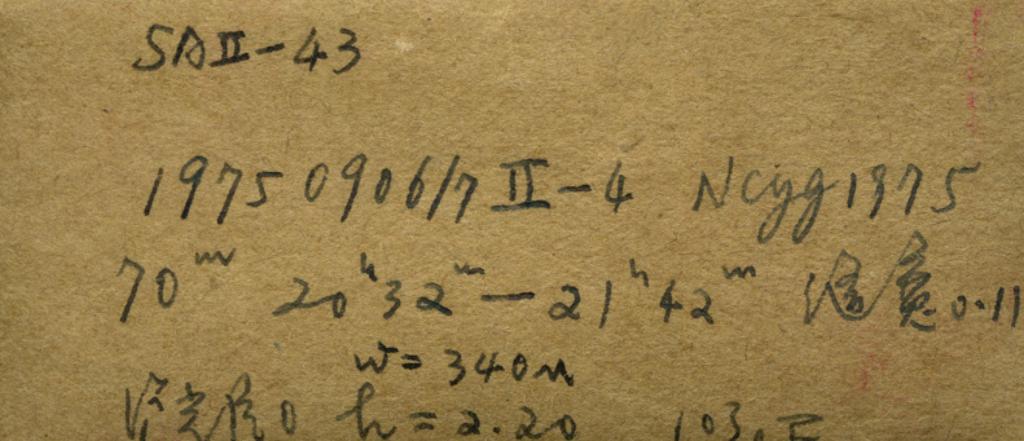 SA II-43
1975 0906/7 II-4 NCyg 1975
70ᵐ 20ʰ32ᵐ—21ʰ42ᵐ 0.11
W=340μ
h=2.20 103.